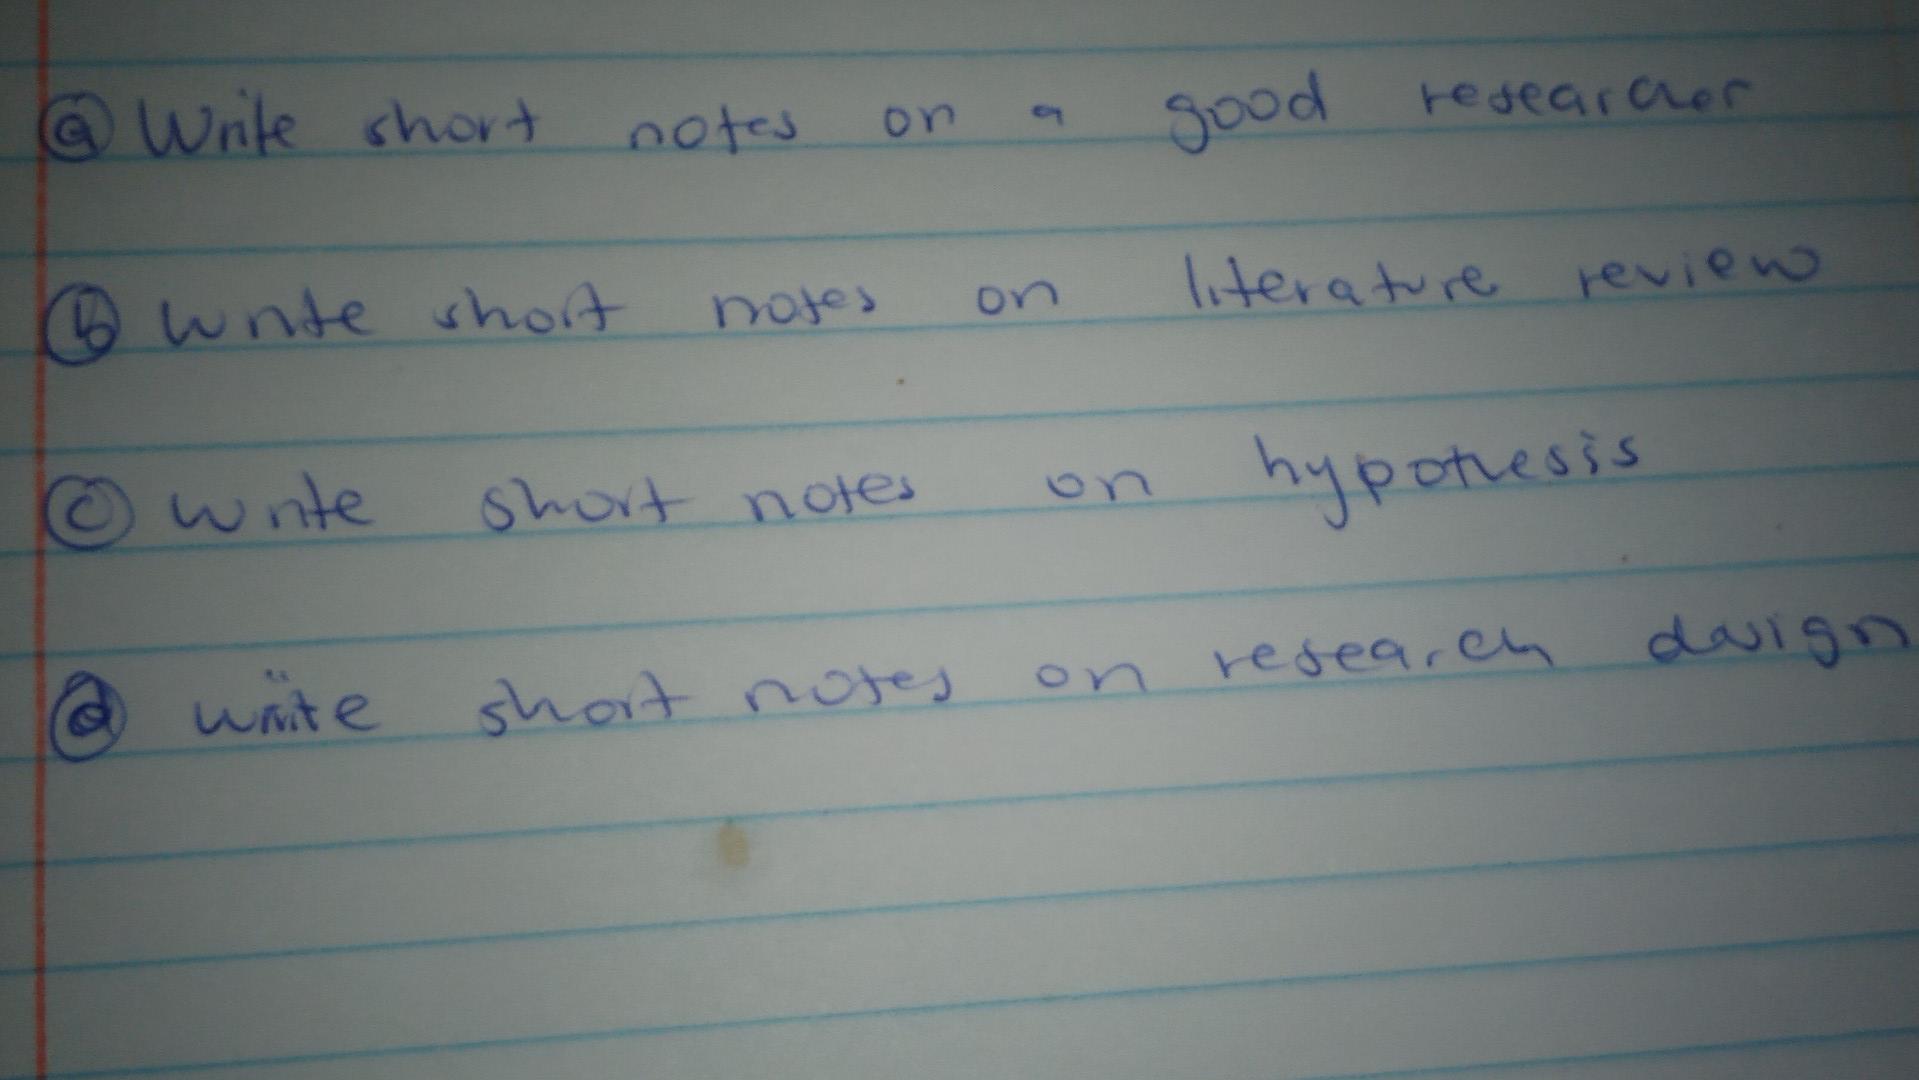 a Write short notes on a good researcher
b write short notes on literature review
c write short notes on hypothesis
d write short notes on research design